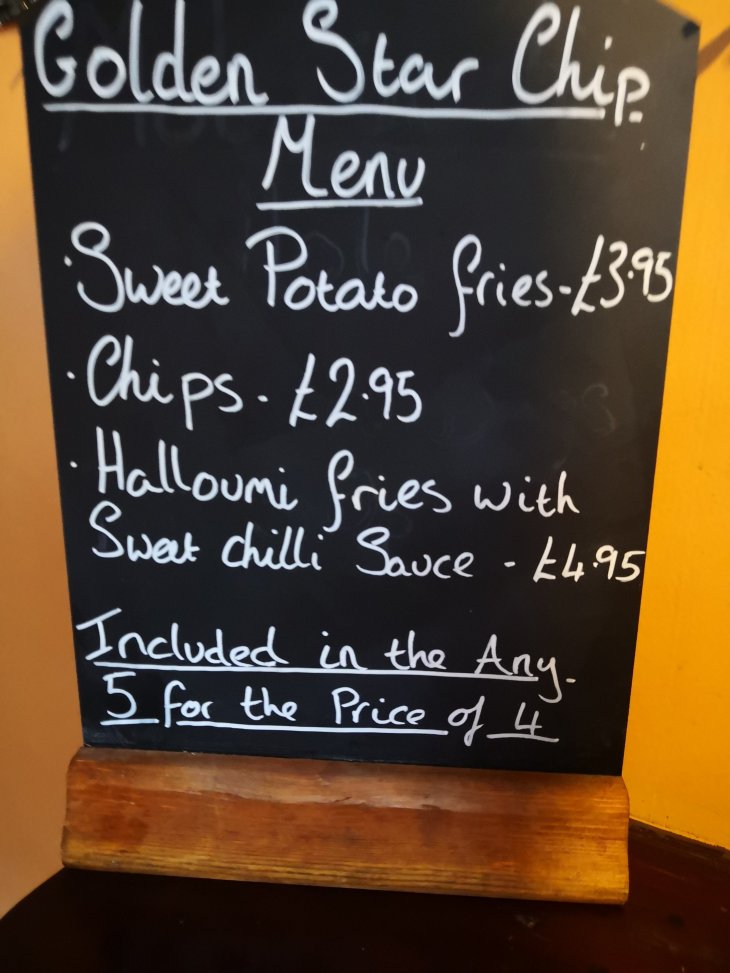 Golden Star Chip
Menu
· Sweet Potato fries - £3.95
· Chips - £2.95
· Halloumi fries with
Sweet chilli Sauce - £4.95
Included in the Any
5 for the Price of 4